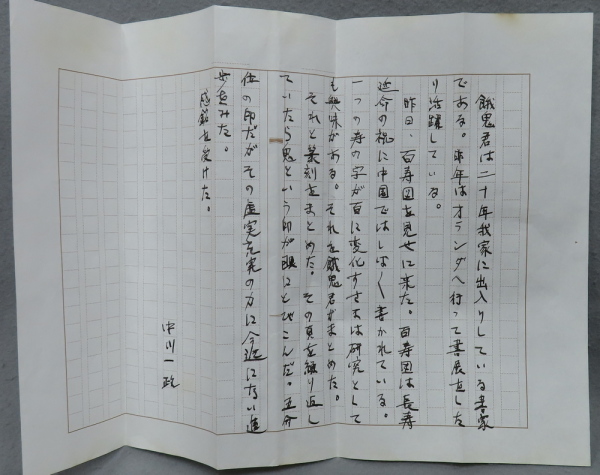 餓鬼君は二十年我家に出入りしている書家
である。昨年はオランダへ行って書展直した
り活躍している。
昨日、百寿図を見せに来た。百寿図は長寿
延命の祝に中国ではしばしば書かれている。
一つの寿の字が百に変化すさまは研究として
も興味がある。それを餓鬼君がまとめた。
それと篆刻をまとめた。その頁を繰り返し
ていたら鬼という印が眼にとびこんだ。五分
位の印だがその虚実充実の方に今迄にない進
歩をみた。
感銘を受けた。
中川一政